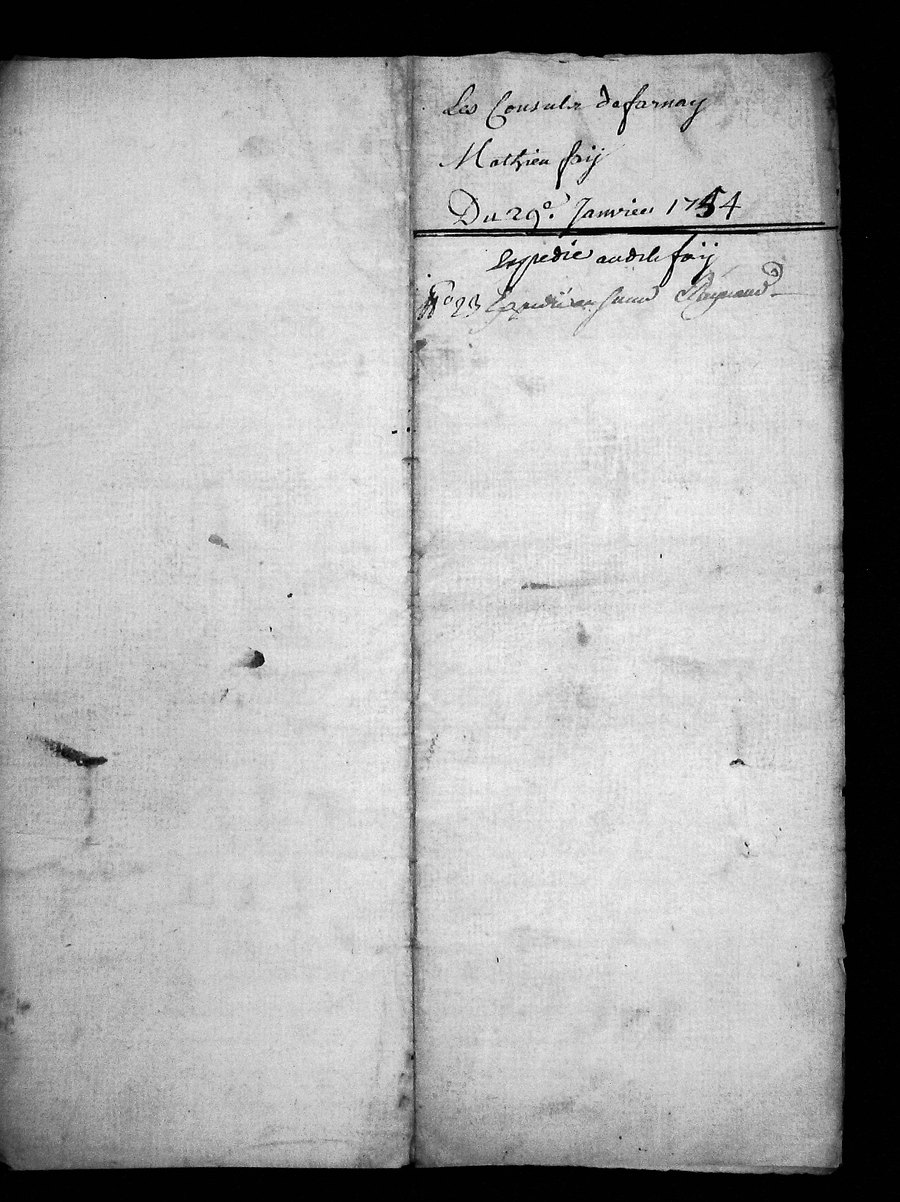 Les Consuls de farnay
Mathieu faij
Du 29e. Janvier 1754
Expedie audit faij
No 23 Expedié au sieur Reynaud